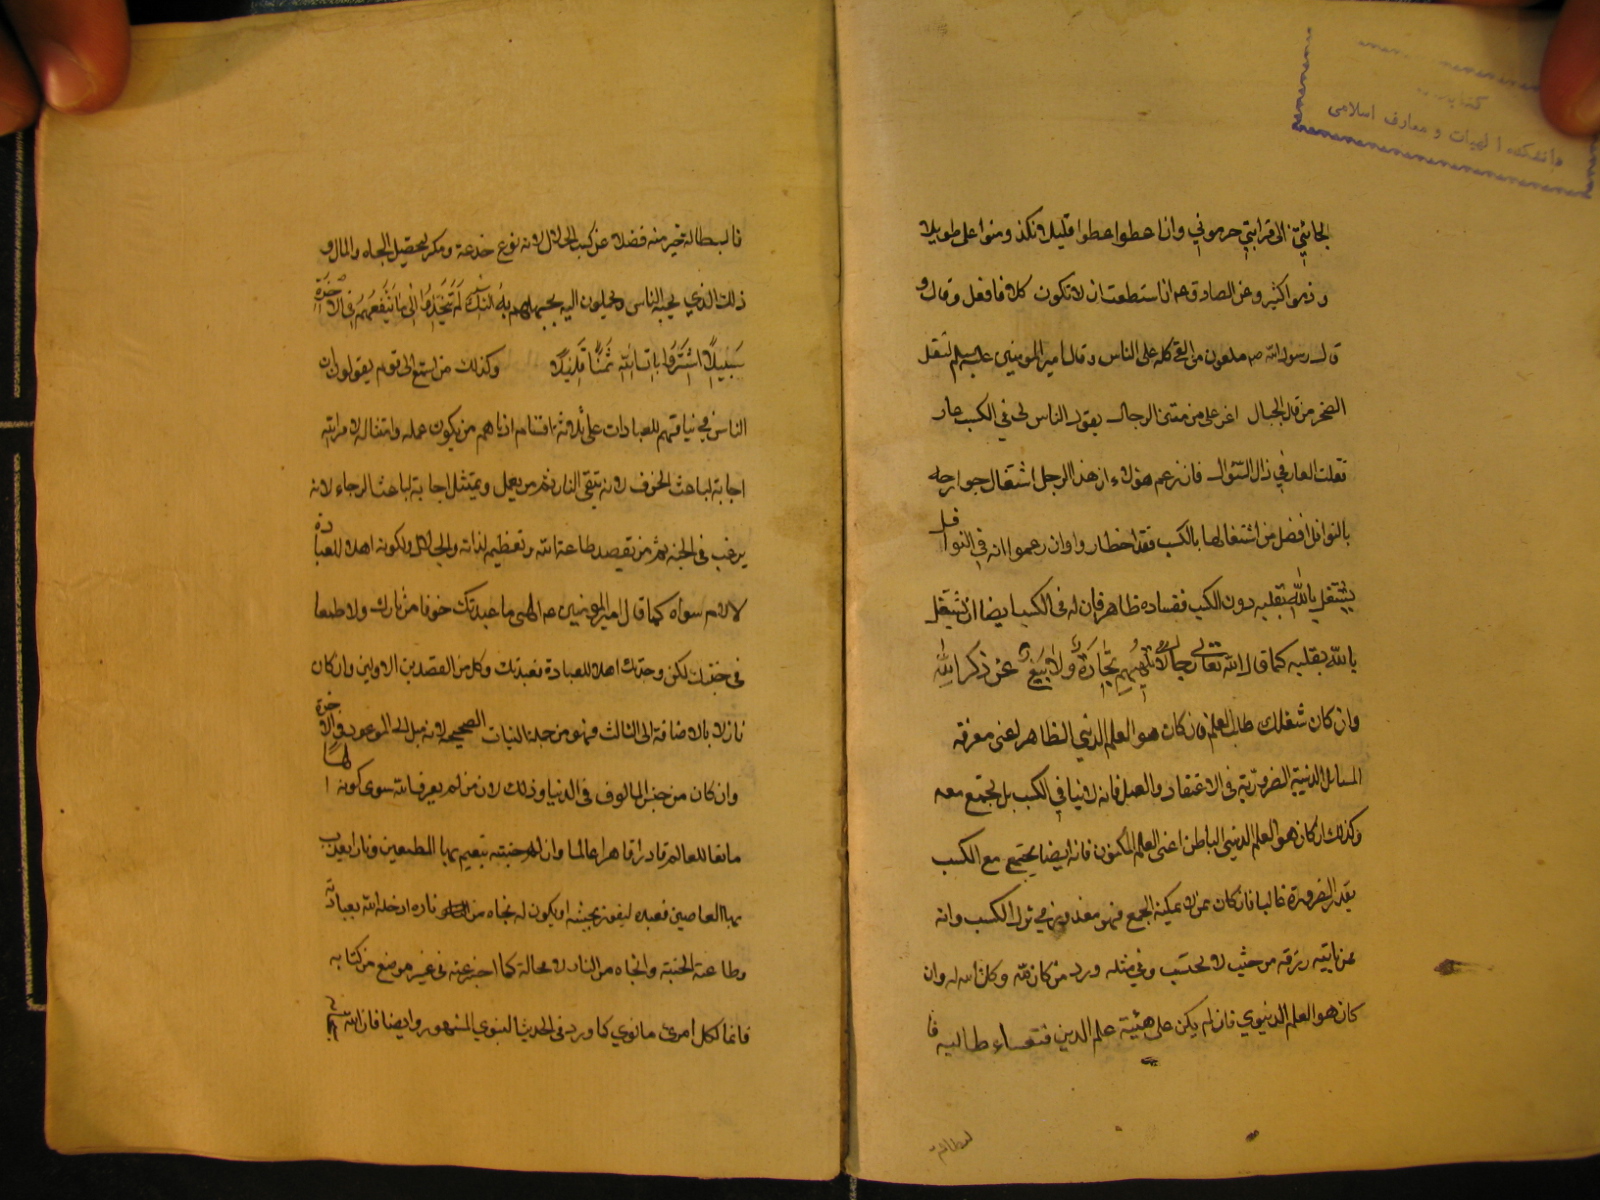 كتابخانه
دانشكده الهيات و معارف اسلامى
الى قرابتي حرموني وان اعطوا اعطوا قليلا نكدا ومنوا على طويلا
وذموا كثيرا وعن الصادق عه ان استطعت ان لا تكون كلا فافعل وقال و
قال رسول الله ص ملعون من القى كله على الناس وقال امير المومنين عليه السلم لنقل
الصخر من قلل الجبال اعز علي من منن الرجال يقول الناس لي في الكسب عار
فقلت العار في ذل السؤال فان زعم هؤلاء ان هذا الرجل اشتغال جوارحه
بالنوافل افضل من اشتغالها بالكسب فقد اخطاروا وان زعموا انه في النوافل
يشتغل بالله بقلبه دون الكسب ففساده ظاهر فان له في الكسب ايضا ان يشتغل
بالله بقلبه كما قال الله تعالى رجال لا تلهيهم تجارة ولا بيع عن ذكر الله
وان كان شغلك طلب العلم فان كان هو العلم الديني الظاهر اعني معرفة
المسائل الدينية الضرورية في الاعتقاد والعمل فانه لا ينافي الكسب بل يجتمع معه
وكذلك ان كان هو العلم الديني الباطن اعني العلم المكنون فانه ايضا يجتمع مع الكسب
بقدر الضرورة غالبا فان كان ممن لا يمكنه الجمع فهو معذور في ترك الكسب وانه
ممن ياتيه رزقه من حيث لا يحتسب وفي مثله ورد من كان لله وكان الله له وان
كان هو العلم الدنيوي فان لم يكن على هيئة علم الدين فتعساء طالبيه فا
لبطالة
فالبطالة خير منه فضلا عن كسب الحلال لانه نوع خدعة ومكر لتحصيل الجاه والمال و
ذلك الذي يحبه الناس ويميلون اليه بجهلهم به
سبيلا اشتروا بايات الله ثمنا قليلا وكذلك من استمع الى قوم يقولون ان
الناس في نياتهم للعبادات على ثلاثة اقسام ادناهم من يكون عمله وامتثاله لامر ربه
اجابة لباعث الخوف لانه يتقي النار ثم من يعمل ويمتثل اجابة لباعث الرجاء لانه
يرغب في الجنة ثم من يقصد طاعة الله وتعظيمه لذاته والجلال ولكونه اهلا للعبادة
لا لامر سواه كما قال امير المومنين عه الهى ما عبدتك خوفا من نارك ولا طمعا
في جنتك لكن وجدتك اهلا للعبادة فعبدتك وكل من القصدين الاولين وان كان
نازلا بالاضافة الى الثالث فهو من جملة النيات الصحيحة لانه ميل الى الموعود في الاخرة
وان كان من جنس المالوف في الدنيا وذلك لان من لم يعرف الله سوى كونه الها
صانعا للعالم قادرا قاهرا عالما وان له جنة ينعيم بها المطيعين ونارا يعذب
بها العاصين فعبده ليفوز بجنته او يكون له نجاه من ناره ادخله الله بعبادته
وطاعته الجنة وانجاه من النار لا محالة كما اخبر عنه في غير موضع من كتابه
فانما لكل امرئ ما نوي كما ورد في الحديث النبوي المشهور وايضا فان الله